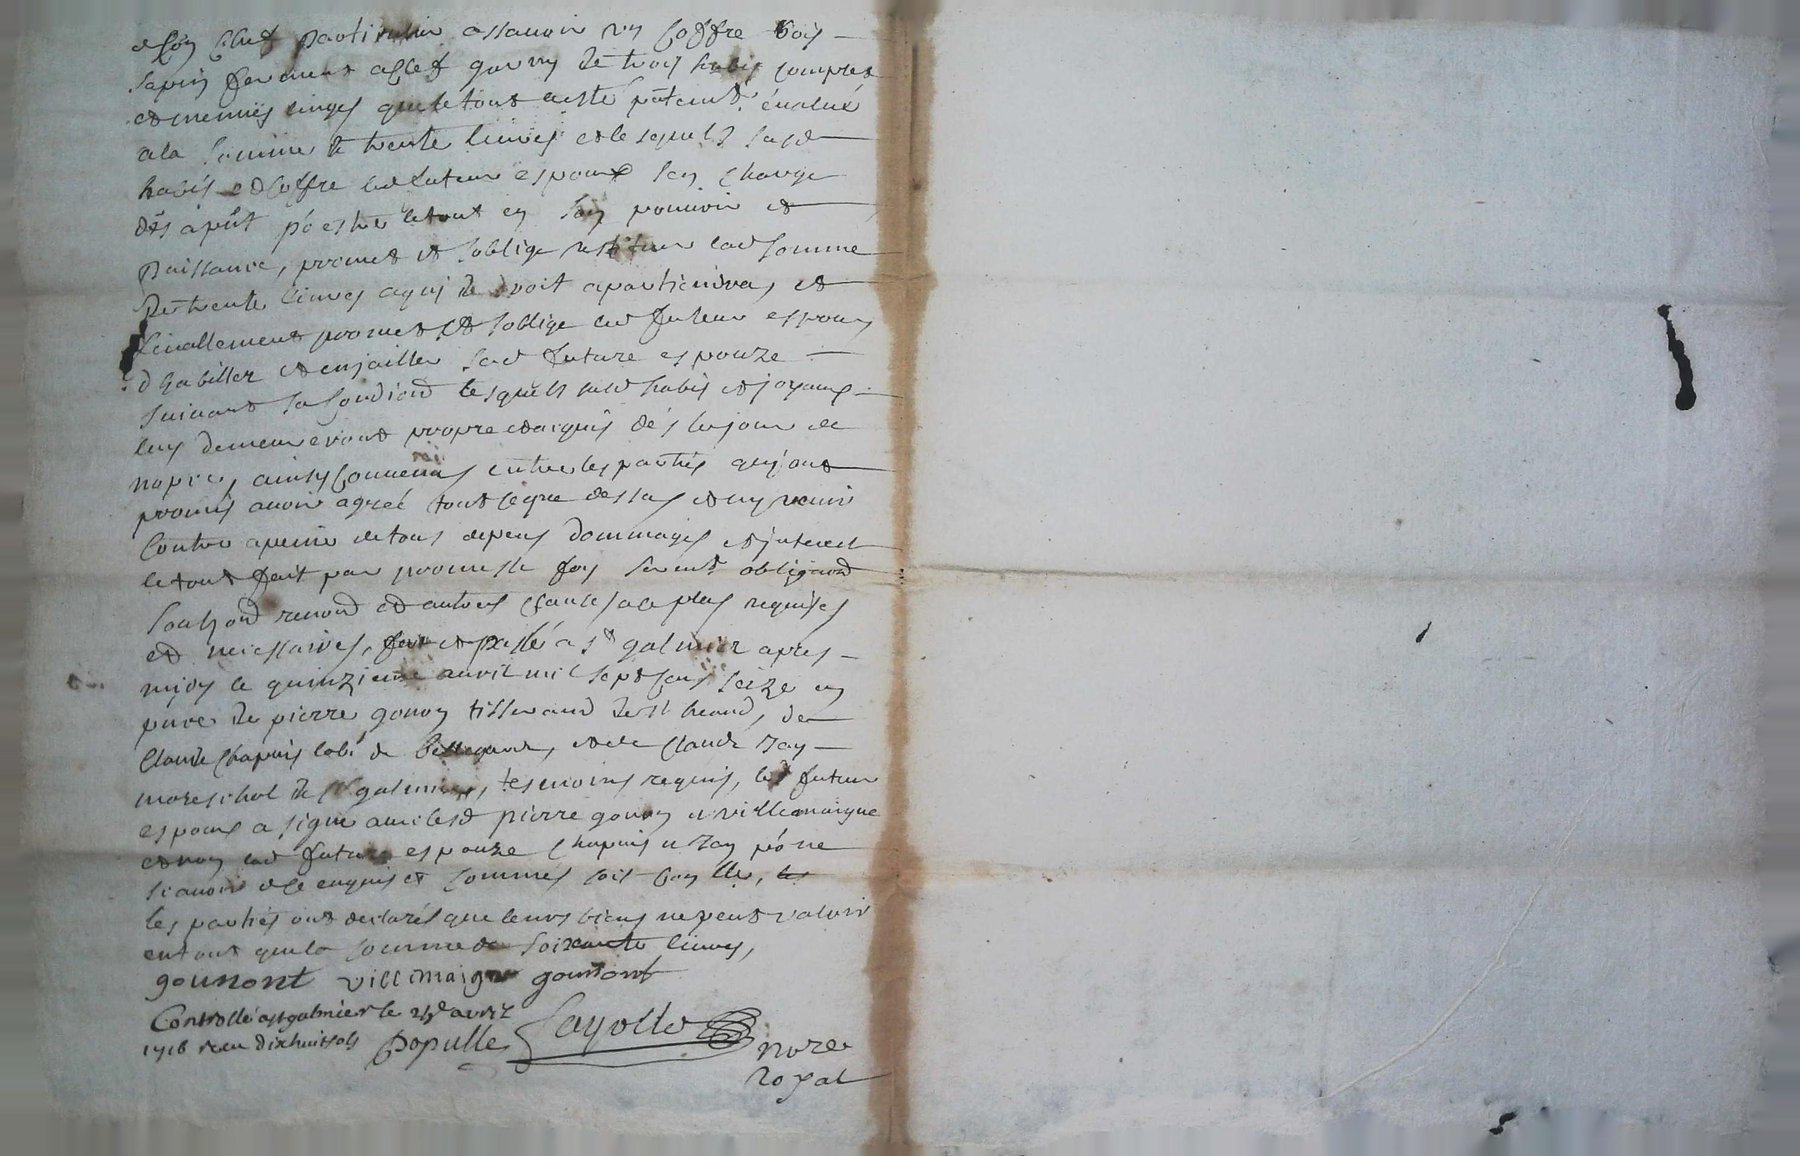 de son chef particulier assavoir un coffre bois
sapin fermant a clef garny de trois habis complet
et menus linges que le tout a esté par entr'eux évalué
a la somme de trente livres et lesquels susd
habis et coffre led futur espoux s'en charge
dés a pnt p'o estre le tout en son pouvoir et
puissance, promet et s'oblige restituer lad somme
de trente livres a qui de droit apartiendra, et
finallement promet et s'oblige led futeur espoux
d'habiller et enjoailler sad future espouze
suivant sa condiond lesquels susd habis et joyaux
luy demeureront propre et acquis dés le jour de
nopce, ainsy convenu entre les partiés quj ont
promis avoir agreé tout ce que dessus et n'y venir
contre a peine de tous depens dommages et jnterest
le tout fait par promesse foy sermt obligaond
soubzond renond et autres clauses a ce plus requises
et necessaires, fait et passé a st galmier apres
midy le quinzieme avril mil sept cens seize en
pnce de pierre gonon tisserand de st heand, de
Claude Chapuis labr de bellegarde, et de Claude Jay
mareschal de st galmier, tesmoins requis, led futeur
espoux a signé avec lesd pierre gonon et villemaigne
et non lad future espouze Chapuis et Jay p'o ne
scavoir de ce enquis et sommés soit baylle, les
les partiés ont declarés que leurs biens ne peut valoir
en tout que la somme de soixante livres,
gounont villemaigne gounont
Controllé a st galmier le 24e avril
1716 receu dixhuit sols Populle Fayolle nore
royal